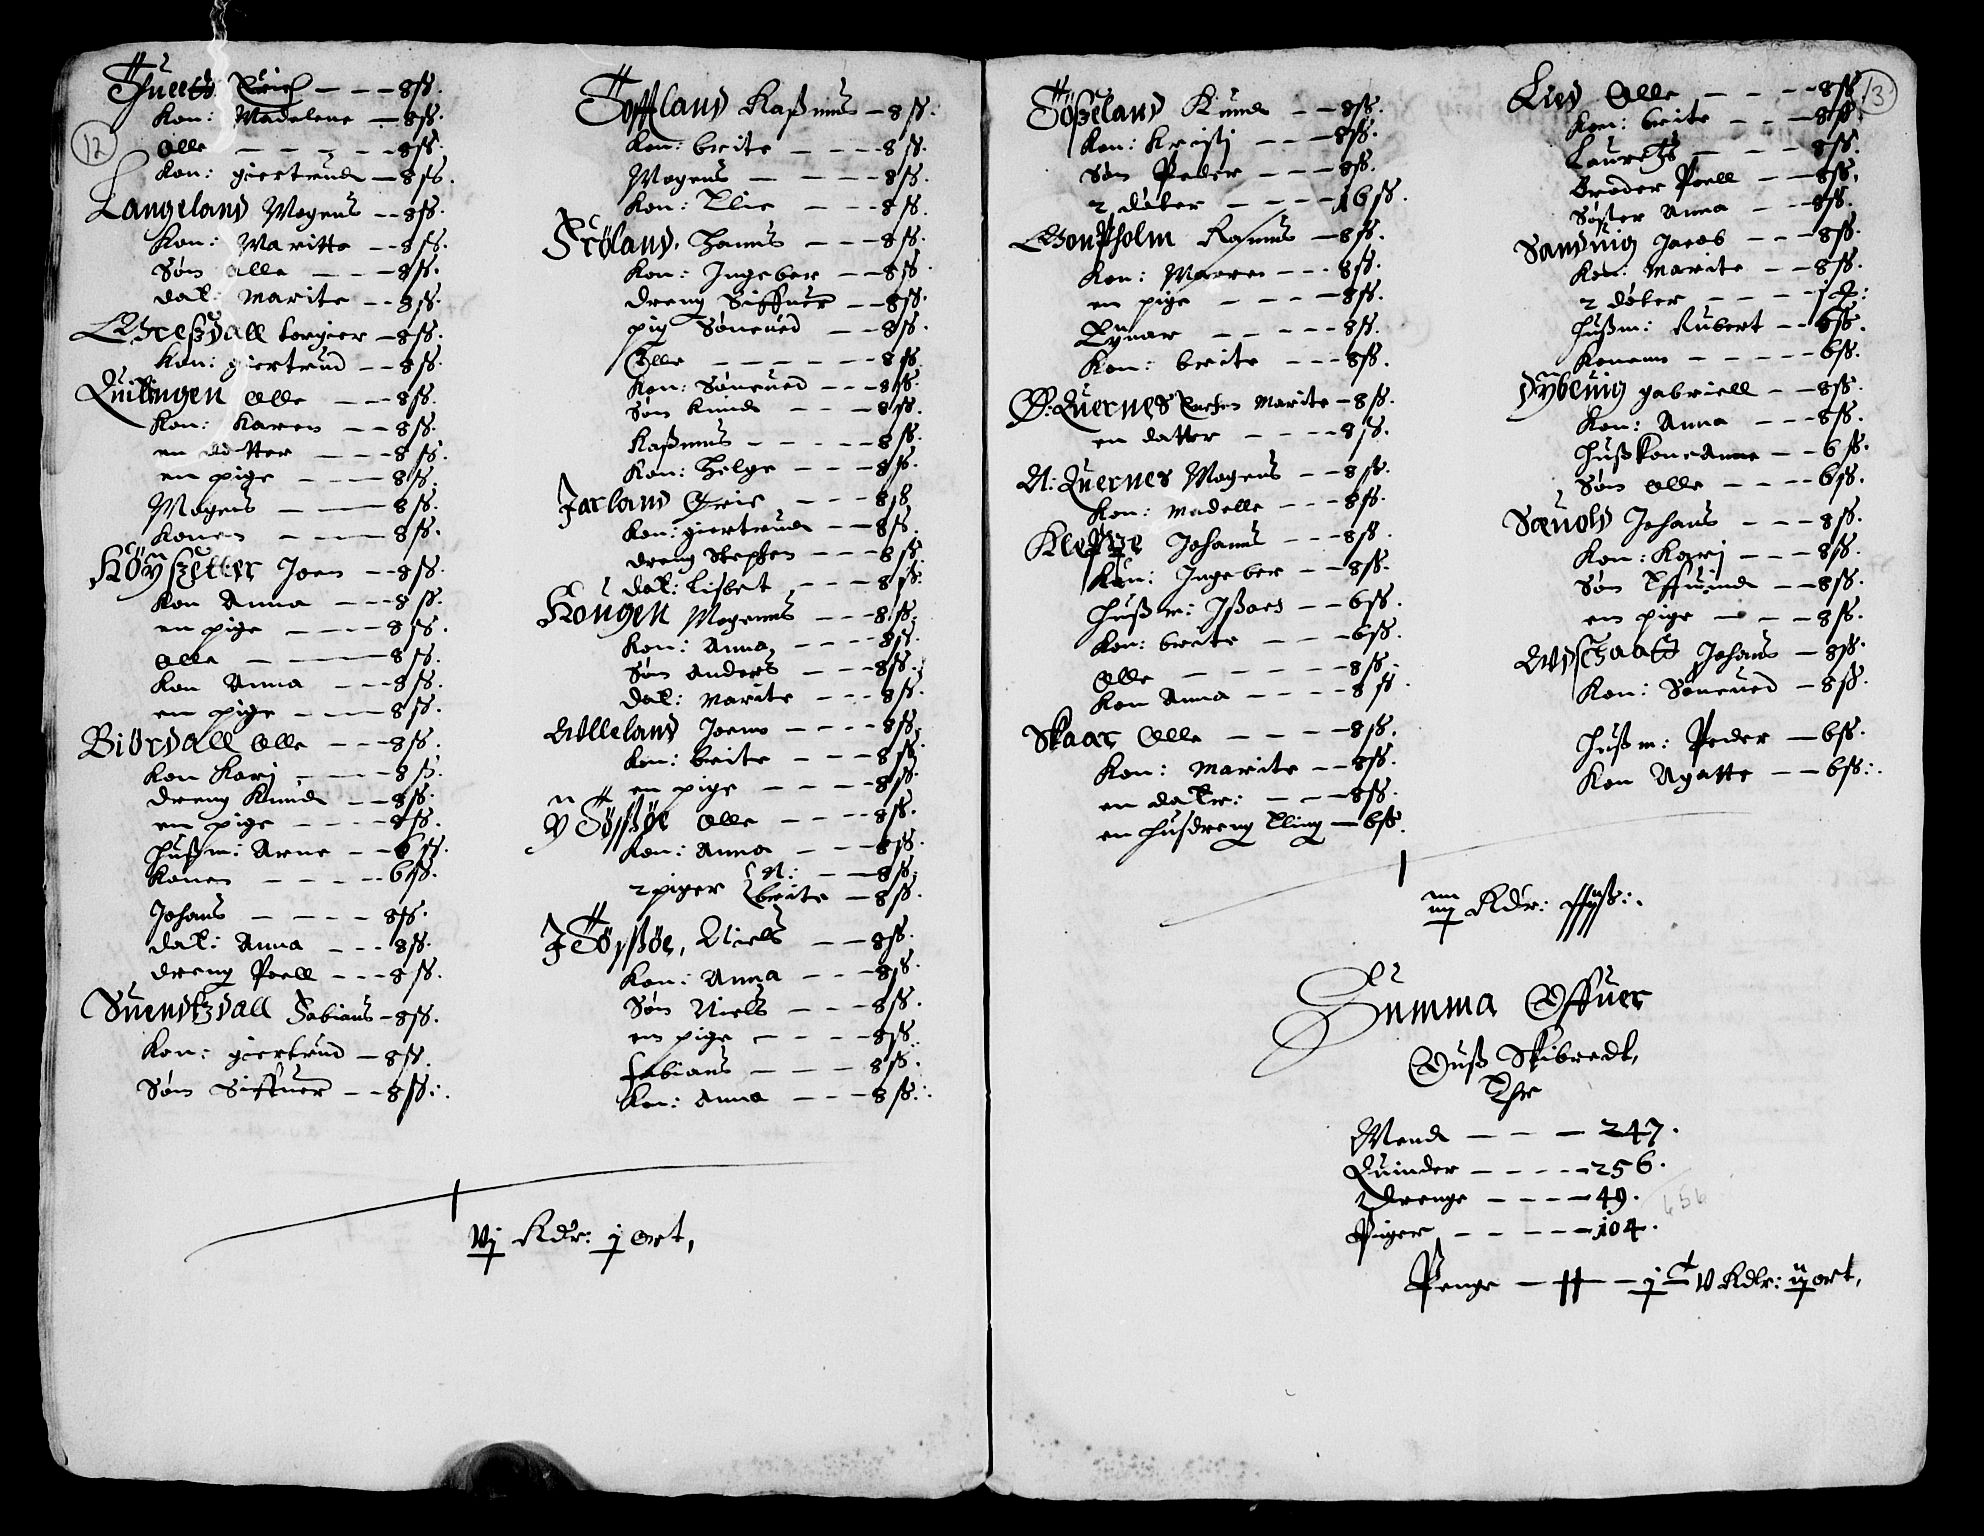 12
Thueett Erich — — — 8 ss.
Kon: Madelene — 8 ss.
Olle — — — — 8 ss.
Kon: giertrude — 8 ss.
Langeland Mogens — — 8 ss.
Kon: Maritte — — 8 ss.
Søn Olle — — — 8 ss.
dat: Marite — — 8 ss.
torgier — 8 ss.
Kon: giertrud — — 8 ss.
Quitingen Olle — — 8 ss.
Kon: Karen — — 8 ss.
en datter — — — 8 ss.
en pige — — — 8 ss.
Mogens — — 8 ss.
Konen — — — 8 ss.
Joen — — 8 ss.
Kon Anna — — — 8 ss.
en pige — — — 8 ss.
Olle — — — 8 ss.
Kon Anna — — — 8 ss.
en pige — — — 8 ss.
Biørdall Olle — — — 8 ss.
Kon Kari — — — 8 ss.
dreng Knud — — 8 ss.
en pige — — — — 8 ss.
Hussm: Arne — — 6 ss.
Konen — — — — 6 ss.
Johans — — — — 8 ss.
dat: Anna — — — 8 ss.
dreng Poell — — — 8 ss.
Suendtzdall Fabians — 8 ss.
Kon: giertrud — 8 ss.
Søn Siffuer — — 8 ss:.
Tofftland Rassmus — 8 ss.
Kon: brite — — — — 8 ss.
Mogens — — — — 8 ss.
Kon: Elie — — — 8 ss.
Frøland, Hanns — — — 8 ss.
Kon: Ingeber — — 8 ss.
dreng Siffuer — — 8 ss.
pig Søneued — — 8 ss.
Olle — — — — — — 8 ss.
Kon: Søneued — — — 8 ss.
Søn Knud — — — 8 ss.
Rassmus — — — — — 8 ss.
Kon: Helge — — — 8 ss.
Jarland Erie — — — 8 ss.
Kon: giertrude — — 8 ss.
dreng Stephen — — — 8 ss.
dat: Lisbet — — — 8 ss:
Kongen Mogenns — — — 8 ss.
Kon: Anna — — — — 8 ss.
Søn Anders — — — 8 ss.
dat: Marite — — — 8 ss.
Wlleland Joens — — — 8 ss.
Kon: brite — — — 8 ss.
en pige — — — — 8 ss.
Y Tøssøe Olle — — — — 8 ss.
Kon: Anna — — — 8 ss.
2 piger N: — — 8 ss.
brite — 8 ss.
I Tøssøe, Niels — — 8 ss.
Kon: Anna — — — 8 ss.
Søn Niels — — — 8 ss.
en pige — — — — 8 ss.
Fabians — — — — 8 ss.
Kon: Anna — — — 8 ss:.
vj Rdr: j ort,
13
Tøsseland Knud — — 8 ss.
Kon: Kristi — — — 8 ss.
Søn Peder — — — 8 ss.
2 døter — — — — 16 ss.
Rasmus — 8 ss.
Kon: Marren — — — 8 ss.
en pige — — — — 8 ss.
Eynar — — — — — 8 ss.
Kon: brite — — — 8 ss.
Ø: Quernes Marite — 8 ss.
en datter — — — — 8 ss.
N: Quernes Mogens — — 8 ss.
Kon: Madelle — — — 8 ss.
Kleppe Johans — — — 8 ss.
Kon: Ingeber — — 8 ss.
Hussm: Issaes — — 6 ss.
Kon: brite — — — 6 ss.
Olle — — — — — 8 ss.
Kon Anna — — — — 8 ss.
Skaar Olle — — — — 8 ss.
Kon: Marite — — 8 ss.
en datr: — — — 8 ss.
en husdreng Elling — 6 ss.
Lied Olle — — — — 8 ss.
Kon: brite — — — 8 ss.
Lauretz — — — — 8 ss.
Broder Poell — — — 8 ss.
Søster Anna — — — 8 ss.
Sanduig Jacob — — — 8 ss.
Kon: Marite — — 8 ss.
2 døter — — — — j Ø:
Hussm: Rubert — — 6 ss.
Konenn — — — — — 6 ss.
Dybeuig gabriell — — 8 ss.
Kon: Anna — — — 8 ss.
Husskone Anne — — 6 ss.
Søn Olle — — — — 6 ss.
Sæuold Johans — — — 8 ss.
Kon: Kari — — — 8 ss.
Søn Effuind — — 8 ss.
en pige — — — — 8 ss.
Johans — 8 ss.
Kon: Søneued — 8 ss.
Hussm: Peder — 6 ss.
Kon Agatte — — 6 ss:.
Rdr:
Summa Offuer
Ouss Skibredt,
Ehr
Mend — — — 247.
Quinder — — — — 256.
Drenge — — — — 49.
Piger — — — — — 104.
656
Penge — — — j c v Rdlr: ij ort,